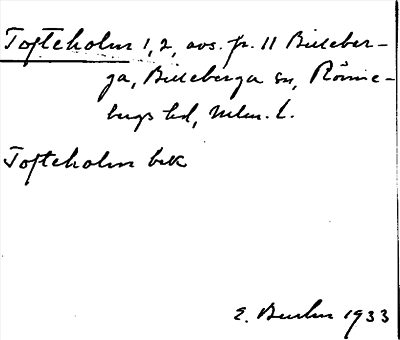 Tofteholm 1, 2, avs. fr. 11 Billeber-
ga, Billeberga sn, Rönne-
bergs hd, Mlm. l.
Tofteholm bek
E. 1933